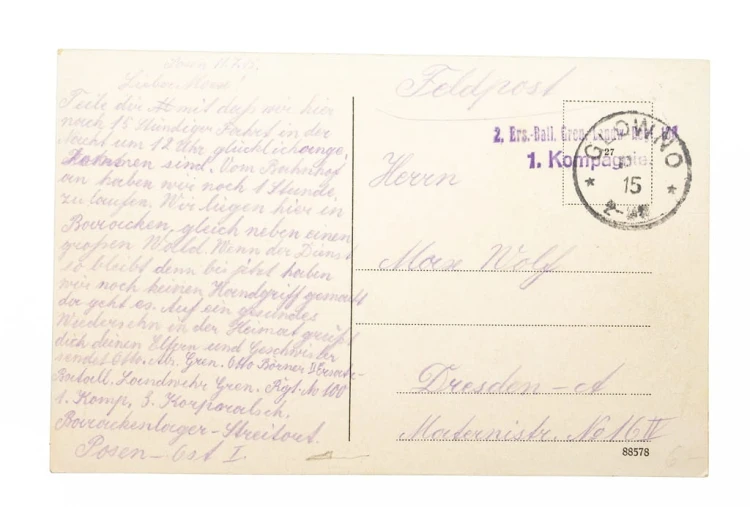 Posen 11.7.15.
Lieber Max!
Teile dir mit daß wir hier
nach 15 Stündiger Fahrt in der
Nacht um 12 Uhr glücklich ange,
kommen sind. Vom Bahnhof
an haben wir noch 1 Stunde,
zu laufen. Wir liegen hier in
Baracken, gleich neben einen
großen Wald. Wenn der Dienst
so bleibt denn bis jetzt haben
wir noch keinen Handgriff gemacht
da geht es. Auf ein gesundes
Wiedersehn in der Heimat grüßt
dich deinen Eltern und Geschwister
sendet Otto. Gren. Otto Börner
Landwehr Gren. Rgt. No 100
1. Komp. 3. Korporalsch.
Barackenlager-
Posen-Ost I.
Feldpost
2. Ers.-Batl. Gren. Landw.
1. Kompagnie.
GLOWNO
15
Herrn
Max Wolf
Dresden-A
Maternistr. No 16 IV
88578